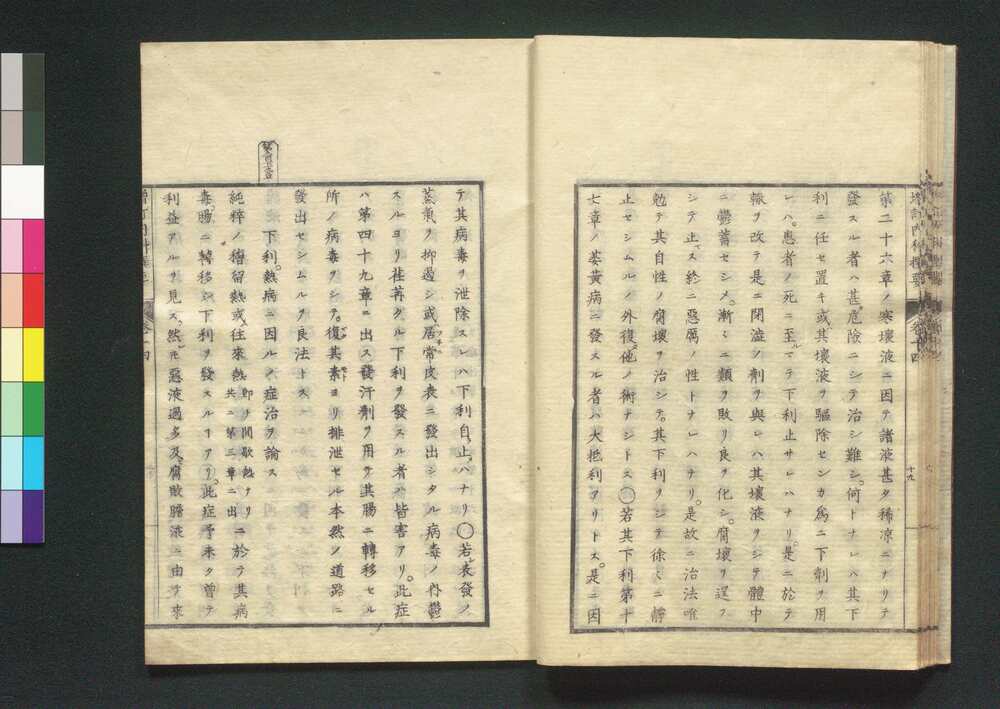 増訂内科撰要
卷十四
十九
第二十六章ノ寒壊液ニ因テ諸液甚タ稀凉ニナリテ
發スル者ハ甚危險ニシテ治シ難シ。何トナレハ其下
利ニ任セ置キ或其壊液ヲ驅除センカ爲ニ下劑ヲ用
レハ。患者ノ死ニ至ルマテ下利止サレハナリ。是ニ於テ
轍ヲ改テ是ニ閉澁ノ劑ヲ與レハ其壊液ヲシテ體中
ニ鬱蓄セシメ。漸ミニ類ヲ敗リ良ヲ化シ。腐壊ヲ逞フ
シテ止ス終ニ惡厲ノ性トナレハナリ。是故ニ治法唯
勉テ其自性ノ腐壊ヲ治シテ。其下利ヲシテ徐ミニ靜
止セシムルノ外復他ノ術ナシトス○若其下利第十
七章ノ萎黄病ニ發スル者ハ大抵利アリトス。是ニ因
テ其病毒ヲ泄除スレハ下利自止ハナリ○若表發ノ
蒸氣ヲ抑遏シ或居常皮表ニ發出シタル病毒ノ内鬱
スルヨリ荏苒タル下利ヲ發スル者ハ皆害アリ。此症
ハ第四十九章ニ出ス發汗劑ヲ用テ其腸ニ轉移セル
所ノ病毒ヲシテ。復其素ヨリ排泄セル本然ノ道路ニ
發出セシムルヲ良法トス
下利。熱病ニ因ルノ症治ヲ論ス
純粹ノ稽留熱或往來熱即ク間歇熱ナリ共ニ第三章ニ出ニ於テ其病
毒腸ニ轉移シ下利ヲ發スルヿアリ。此症予未タ曽テ
利益アルヲ見ス。然𪜈惡液過多及腐敗膽液ニ由テ來